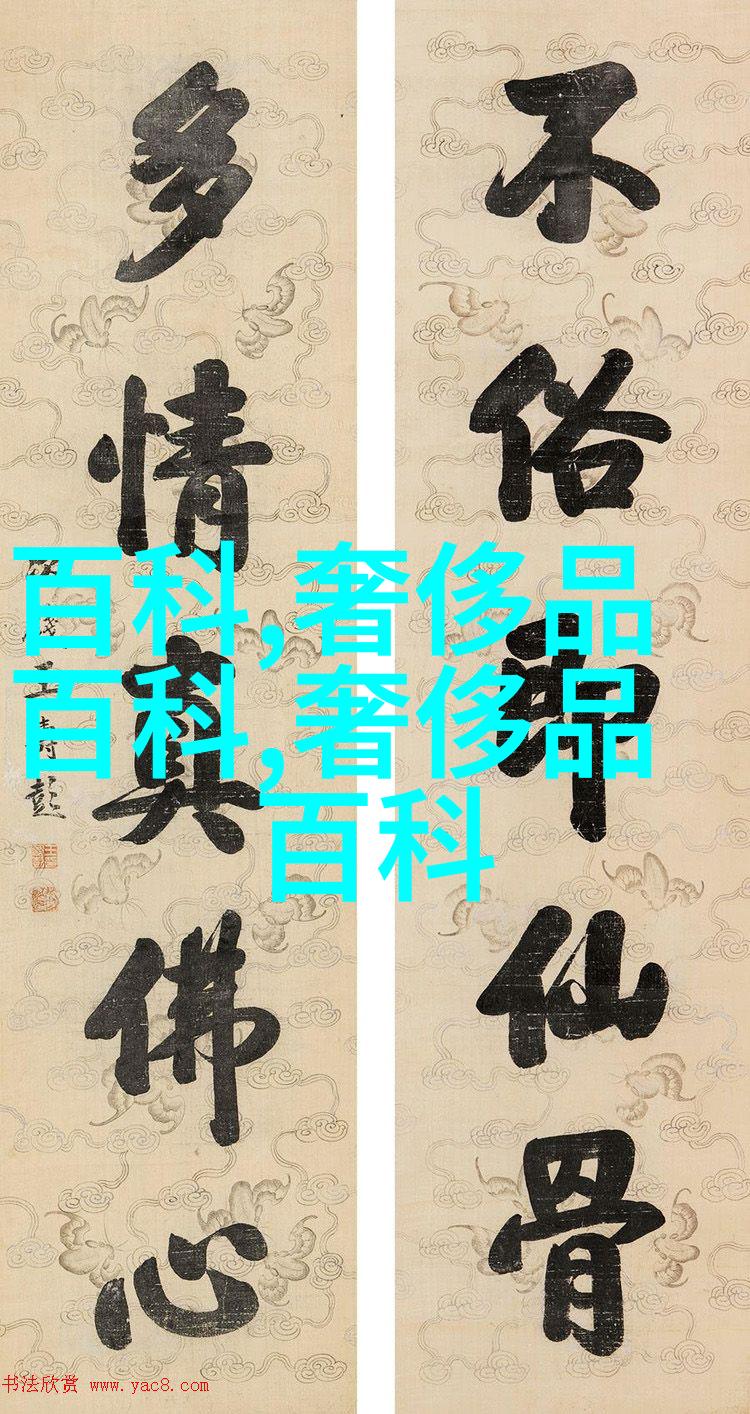 不俗即仙骨
多情真佛心
王壽彭
百科,奢侈品
百科,奢侈品
百科
书法欣赏 www.yac8.com